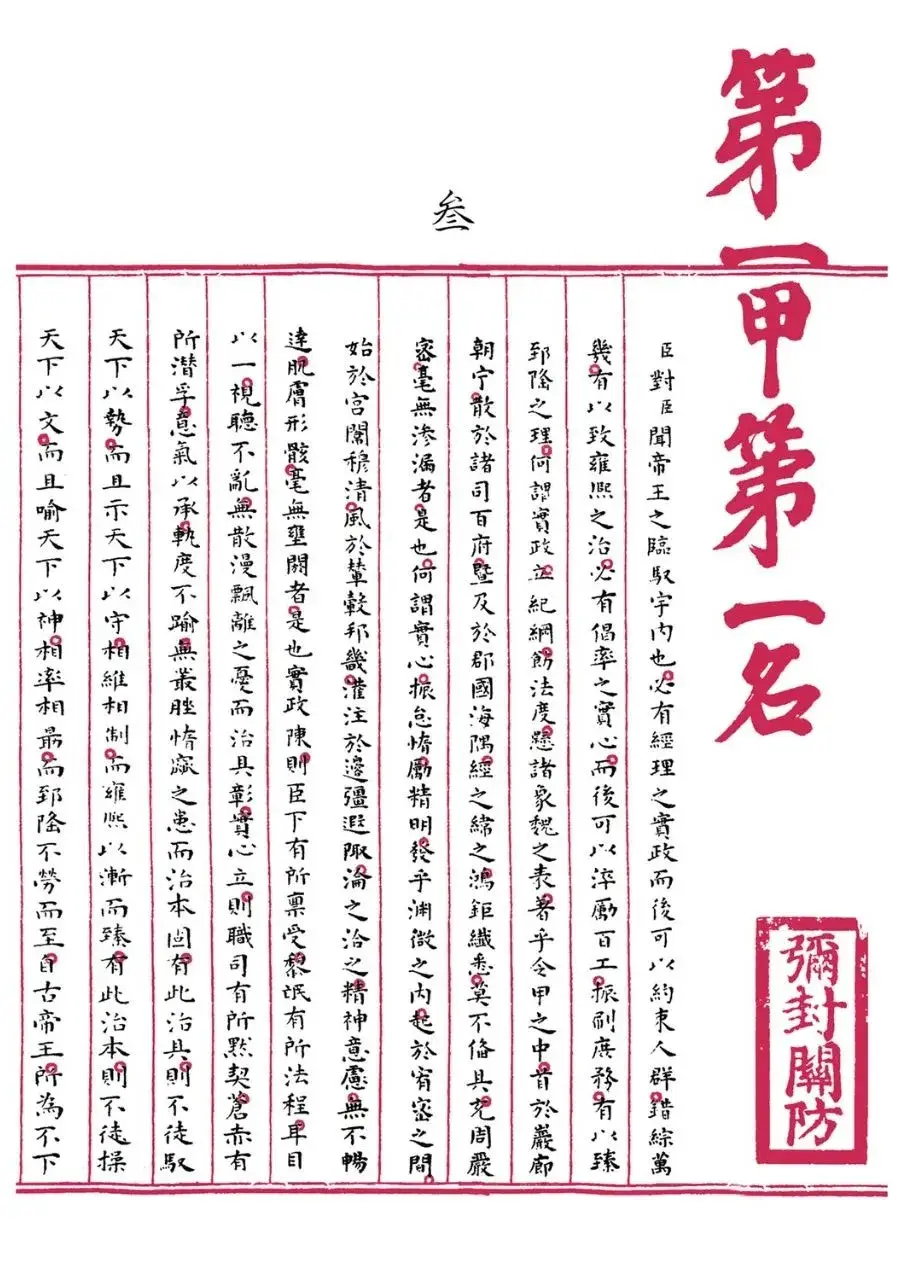 第一甲第一名
彌封關防
叁
臣對臣聞帝王之臨馭宇內也必有經理之實政而後可以約束人群錯綜萬
幾有以致雍熙之治必有倡率之實心而後可以淬勵百工振刷庶務有以臻
郅隆之理何謂實政立紀綱飭法度懸諸象魏之表著乎令甲之中首於巖廊
朝宁散於諸司百府暨及於郡國海隅經之緯之鴻鉅纖悉莫不俻具充周嚴
密毫無滲漏者是也何謂實心振怠惰勵精明發乎淵微之內起於宥密之間
始於宮闈穆清風於輦轂邦畿灌注於邊彊遐陬淪之洽之精神意慮無不暢
達肌膚形骸毫無壅閼者是也實政陳則臣下有所稟受黎氓有所法程耳目
以一視聽不亂無散漫飄離之憂而治具彰實心立則職司有所默契蒼赤有
所潛孚意氣以承軌度不踰無叢脞惰窳之患而治本固有此治具則不徒馭
天下以勢而且示天下以守相維相制而雍熙以漸而臻有此治本則不徒操
天下以文而且喻天下以神相率相勗而郅隆不勞而至自古帝王所為不下